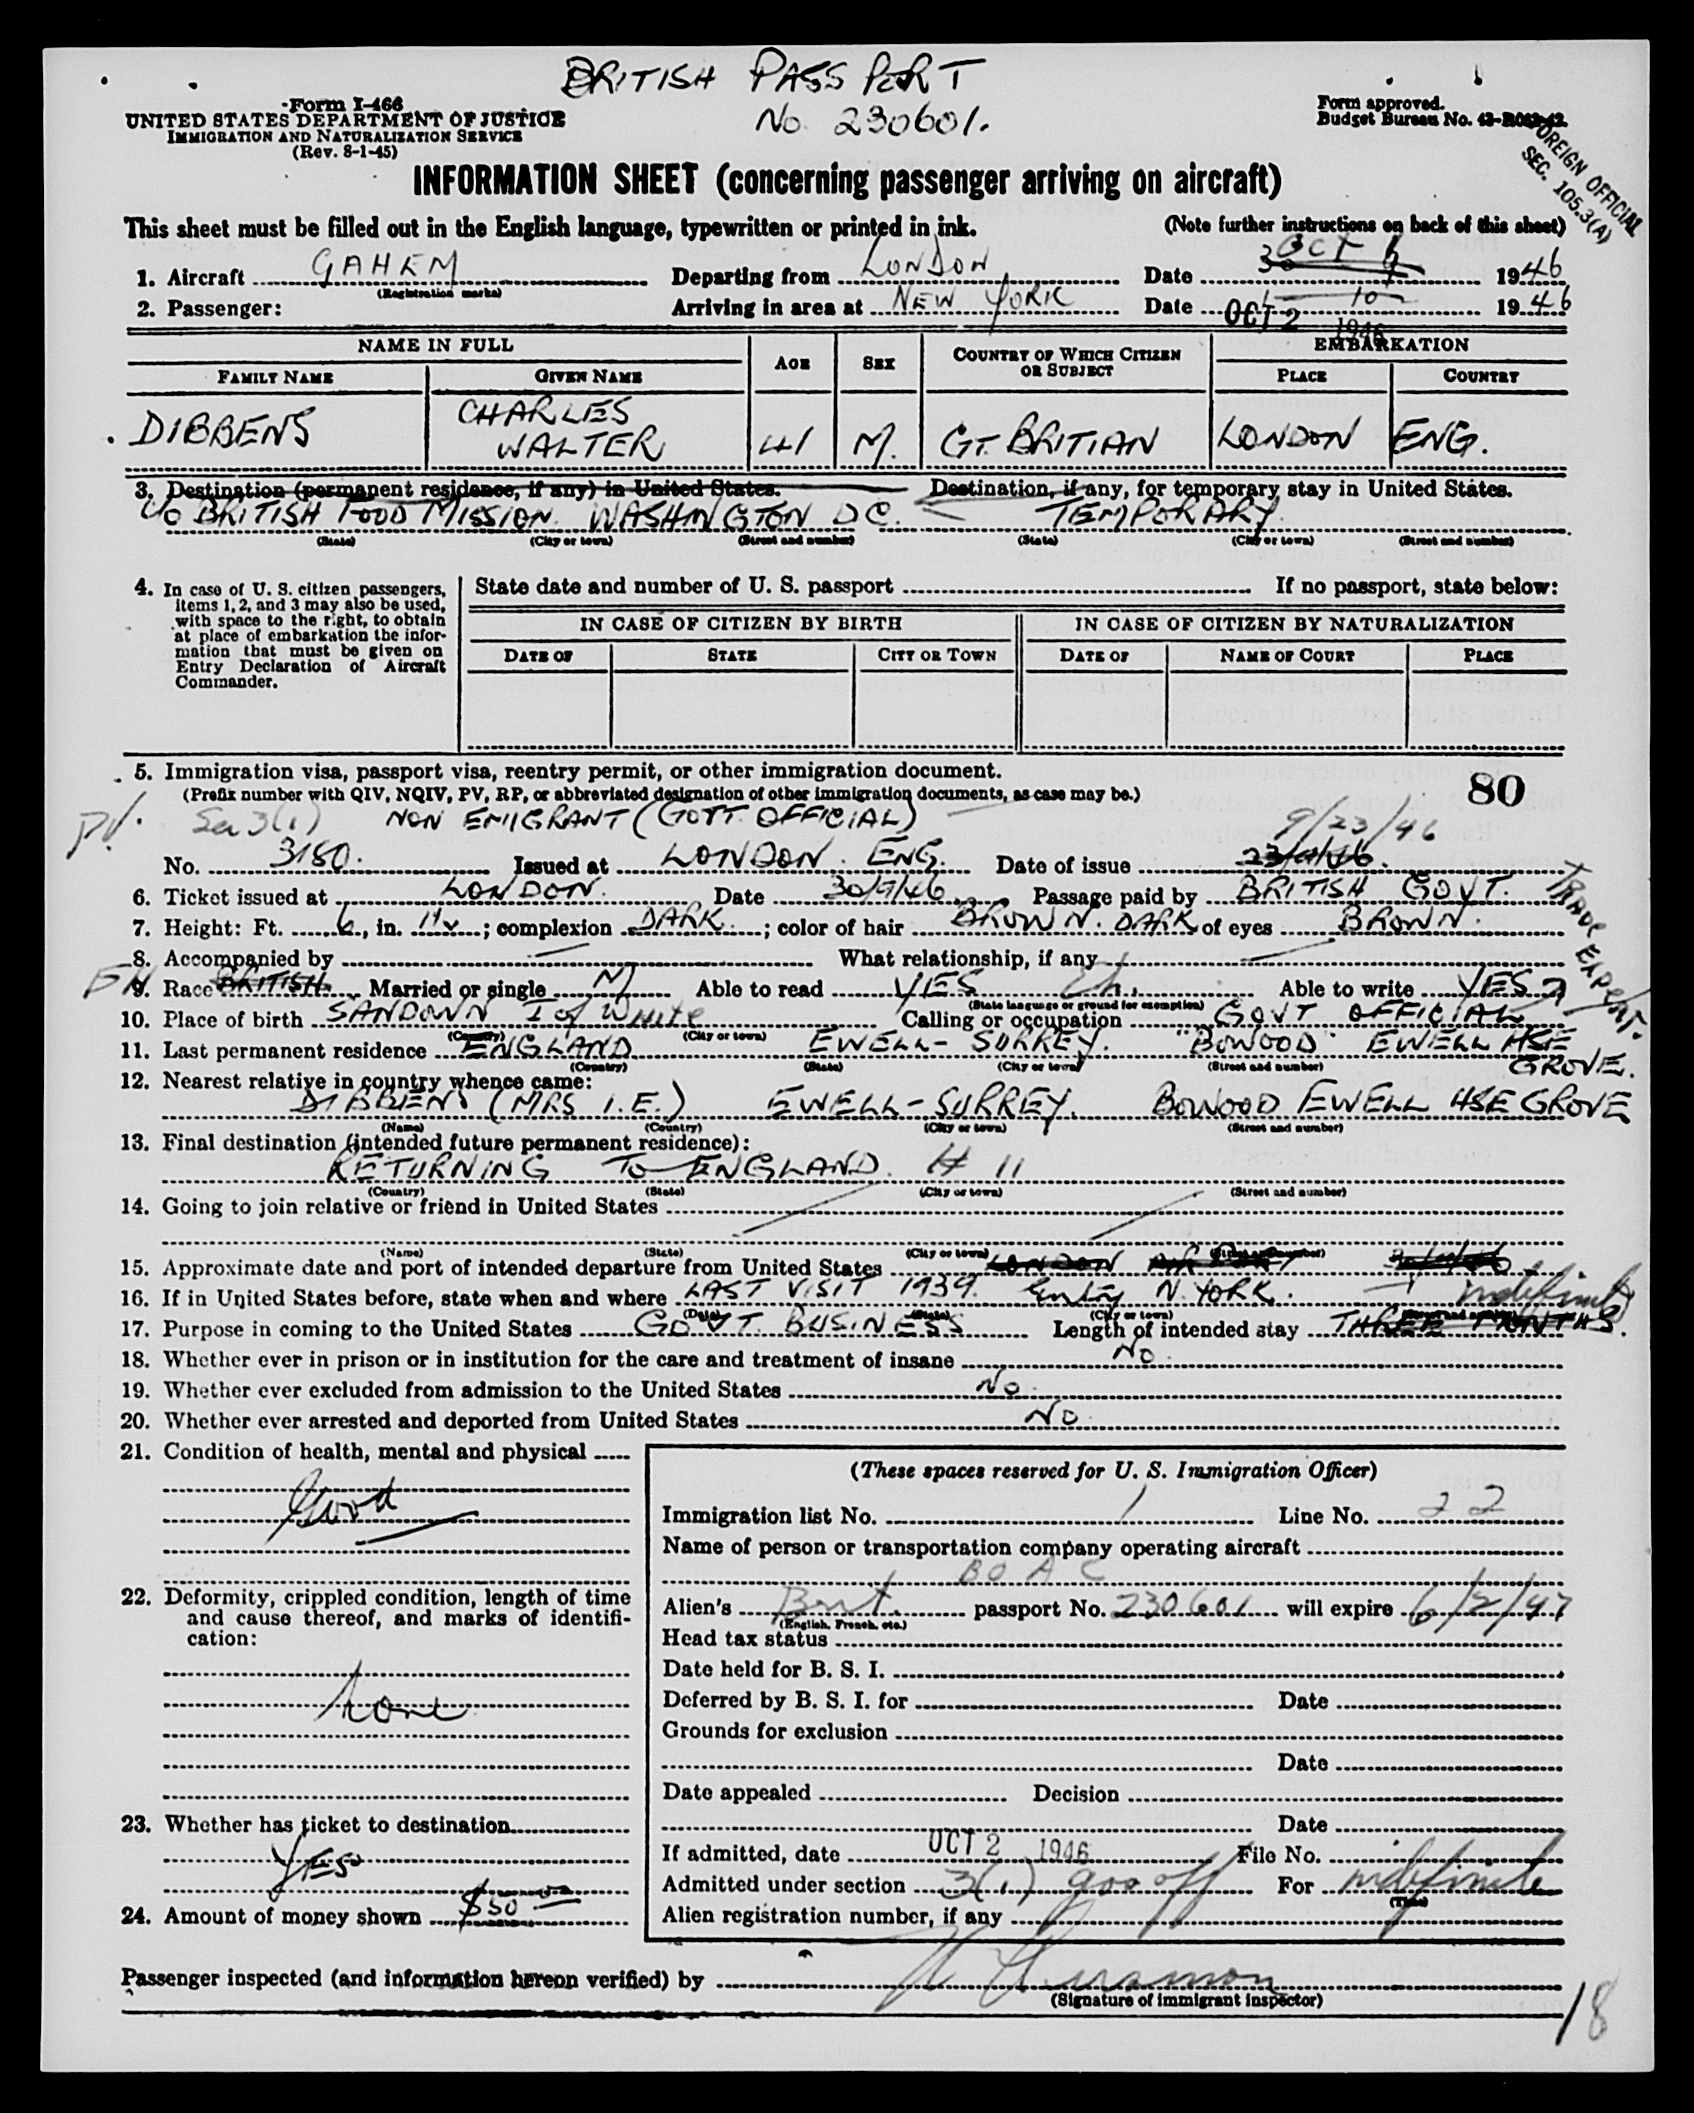 BRITISH PASSPORT
No. 230601.
Form I-466
UNITED STATES DEPARTMENT OF JUSTICE
IMMIGRATION AND NATURALIZATION SERVICE
(Rev. 8-1-45)
Form approved.
Budget Bureau No.
FOREIGN OFFICIAL
SEC. 105.3(A)
INFORMATION SHEET (concerning passenger arriving on aircraft)
This sheet must be filled out in the English language, typewritten or printed in ink. (Note further instructions on back of this sheet)
1. Aircraft GAHEM Departing from LONDON Date OCT 1946
(Registration marks)
2. Passenger: Arriving in area at NEW YORK Date OCT 2 1946 1946
NAME IN FULL AGE SEX COUNTRY OF WHICH CITIZEN OR SUBJECT EMBARKATION
FAMILY NAME GIVEN NAME PLACE COUNTRY
DIBBENS CHARLES WALTER 41 M. GT. BRITIAN LONDON ENG.
3. Destination (permanent residence, if any) in United States. Destination, if any, for temporary stay in United States.
C/O BRITISH FOOD MISSION. WASHINGTON DC. TEMPORARY.
(State) (City or town) (Street and number) (State) (City or town) (Street and number)
4. In case of U. S. citizen passengers, items 1, 2, and 3 may also be used, with space to the right, to obtain at place of embarkation the information that must be given on Entry Declaration of Aircraft Commander.
State date and number of U. S. passport If no passport, state below:
IN CASE OF CITIZEN BY BIRTH IN CASE OF CITIZEN BY NATURALIZATION
DATE OF STATE CITY OR TOWN DATE OF NAME OF COURT PLACE
5. Immigration visa, passport visa, reentry permit, or other immigration document.
80
(Prefix number with QIV, NQIV, PV, RP, or abbreviated designation of other immigration documents, as case may be.)
PV. Sec 3(1) NON EMIGRANT (GOTT. OFFICIAL) 9/23/46
No. 3180. Issued at LONDON. ENG. Date of issue 23/9/46.
6. Ticket issued at LONDON. Date 30/9/46 Passage paid by BRITISH GOVT.
TRADE EXPERT.
7. Height: Ft. 6, in. 1½; complexion DARK.; color of hair BROWN. DARK of eyes BROWN.
8. Accompanied by What relationship, if any
9. Race BRITISH. Married or single M Able to read YES Eh. Able to write YES
(State language or ground for exemption)
10. Place of birth SANDOWN I of White Calling or occupation GOVT OFFICIAL
(Country) (City or town)
11. Last permanent residence ENGLAND EWELL-SURREY. "BOWOOD" EWELL HSE GROVE.
(Country) (State) (City or town) (Street and number)
12. Nearest relative in country whence came:
DIBBENS (MRS I.E.) EWELL-SURREY. BOWOOD EWELL HSE GROVE
(Name) (Country) (City or town) (Street and number)
13. Final destination (intended future permanent residence):
RETURNING TO ENGLAND. # 11
(Country) (State) (City or town) (Street and number)
14. Going to join relative or friend in United States
(Name) (State) (City or town) (Street and number)
15. Approximate date and port of intended departure from United States LONDON AIR PORT
16. If in United States before, state when and where LAST VISIT 1939. Entry N. YORK. indefinite
(Date) (State) (City or town) (Street and number)
17. Purpose in coming to the United States GOVT. BUSINESS Length of intended stay THREE MONTHS.
18. Whether ever in prison or in institution for the care and treatment of insane No.
19. Whether ever excluded from admission to the United States No.
20. Whether ever arrested and deported from United States No.
21. Condition of health, mental and physical
Good
22. Deformity, crippled condition, length of time and cause thereof, and marks of identification:
None
23. Whether has ticket to destination
YES
24. Amount of money shown $50.00
(These spaces reserved for U. S. Immigration Officer)
Immigration list No. 1 Line No. 22
Name of person or transportation company operating aircraft
BOAC
Alien's Brit. passport No. 230601 will expire 6/2/47
(English, French, etc.)
Head tax status
Date held for B. S. I.
Deferred by B. S. I. for Date
Grounds for exclusion
Date
Date appealed Decision
Date
If admitted, date OCT 2 1946 File No.
Admitted under section 3(1) gov off For indefinite
(Time)
Alien registration number, if any
Passenger inspected (and information hereon verified) by
(Signature of immigrant inspector)
18